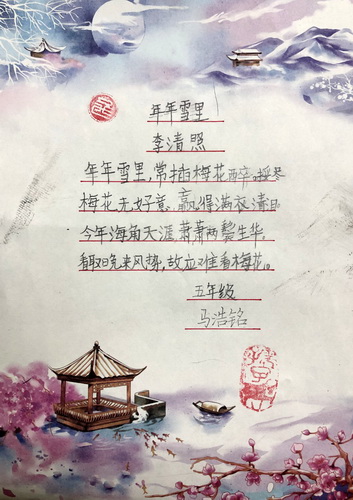 年年雪里
李清照
年年雪里,常插梅花醉。挼尽
梅花无好意,赢得满衣清日
今年海角天涯,萧萧两鬓生华,
看取晚来风势,故应难看梅花。
五年级
马浩铭